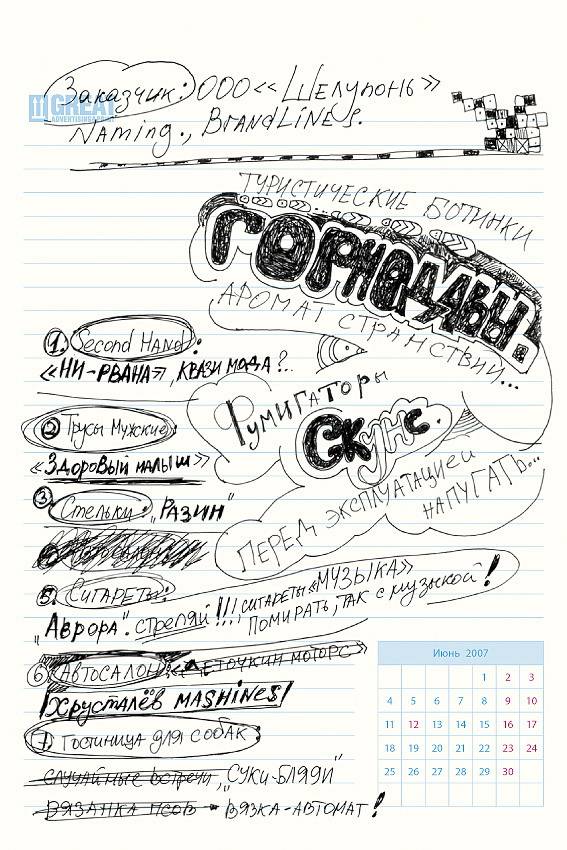 Заказчик: ООО «Шелупонь»
GREAT
Naming., BrandLines.
ТУРИСТИЧЕСКИЕ БОТИНКИ
ГОРНОДАВЫ.
АРОМАТ СТРАНСТВИЙ...
1. Second Hand:
«НИ-РВАНА», КВАЗИ МОДА?..
Фумигаторы
Скунс.
ПЕРЕД ЭКСПЛУАТАЦИЕЙ
НАПУГАТЬ...
2 Трусы Мужские:
«Здоровый малыш»
3 Стельки: „РАЗИН"
5. Сигареты:
„Аврора". стреляй!!!
СИГАРЕТЫ «МУЗЫКА»
ПОМИРАТЬ, ТАК с музыкой!
6 АВТОСАЛОН: «ЛЕТОЧКИН МОТОРС»
Хрусталёв MASHINES
7 Гостиница для собак
СЛУЧАЙНЫЕ встречи, „СУКИ-БЛЯДИ"
ВЯЗАНКА ПСОВ - ВЯЗКА-АВТОМАТ!
Июнь 2007
1 2 3
4 5 6 7 8 9 10
11 12 13 14 15 16 17
18 19 20 21 22 23 24
25 26 27 28 29 30